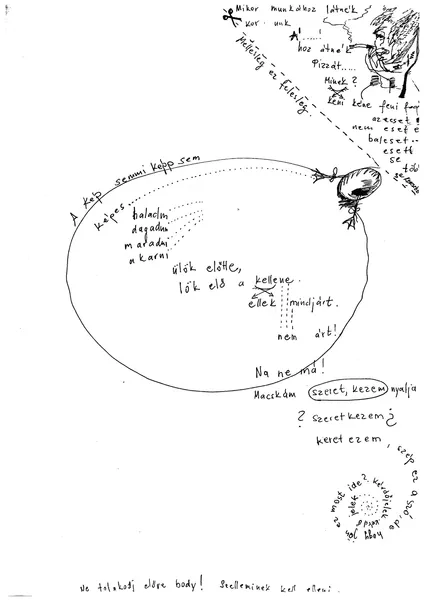 Mikor munkához látnék
kor unk
A'.....!
hoz átnék
Pizzát.....
Minek?
keni kéne feni
az eset!
nem eset é
baleset..
esett
se
több
Mellesleg ez felesleg.
A kép semmi képp sem
képes...
haladni
dagadni
maradni
akarni
ülök előtte,
lök elő a kellene.
ellek mindjárt.
nem árt!
Na ne má!
Macskám szeret, kezem nyalja
? szeretkezem ?
keretezem, szép ez a szó, de
hogy jön ez most ide? kérdőjelek
Ne tolakodj előre body! Szelleminek kell lenni.